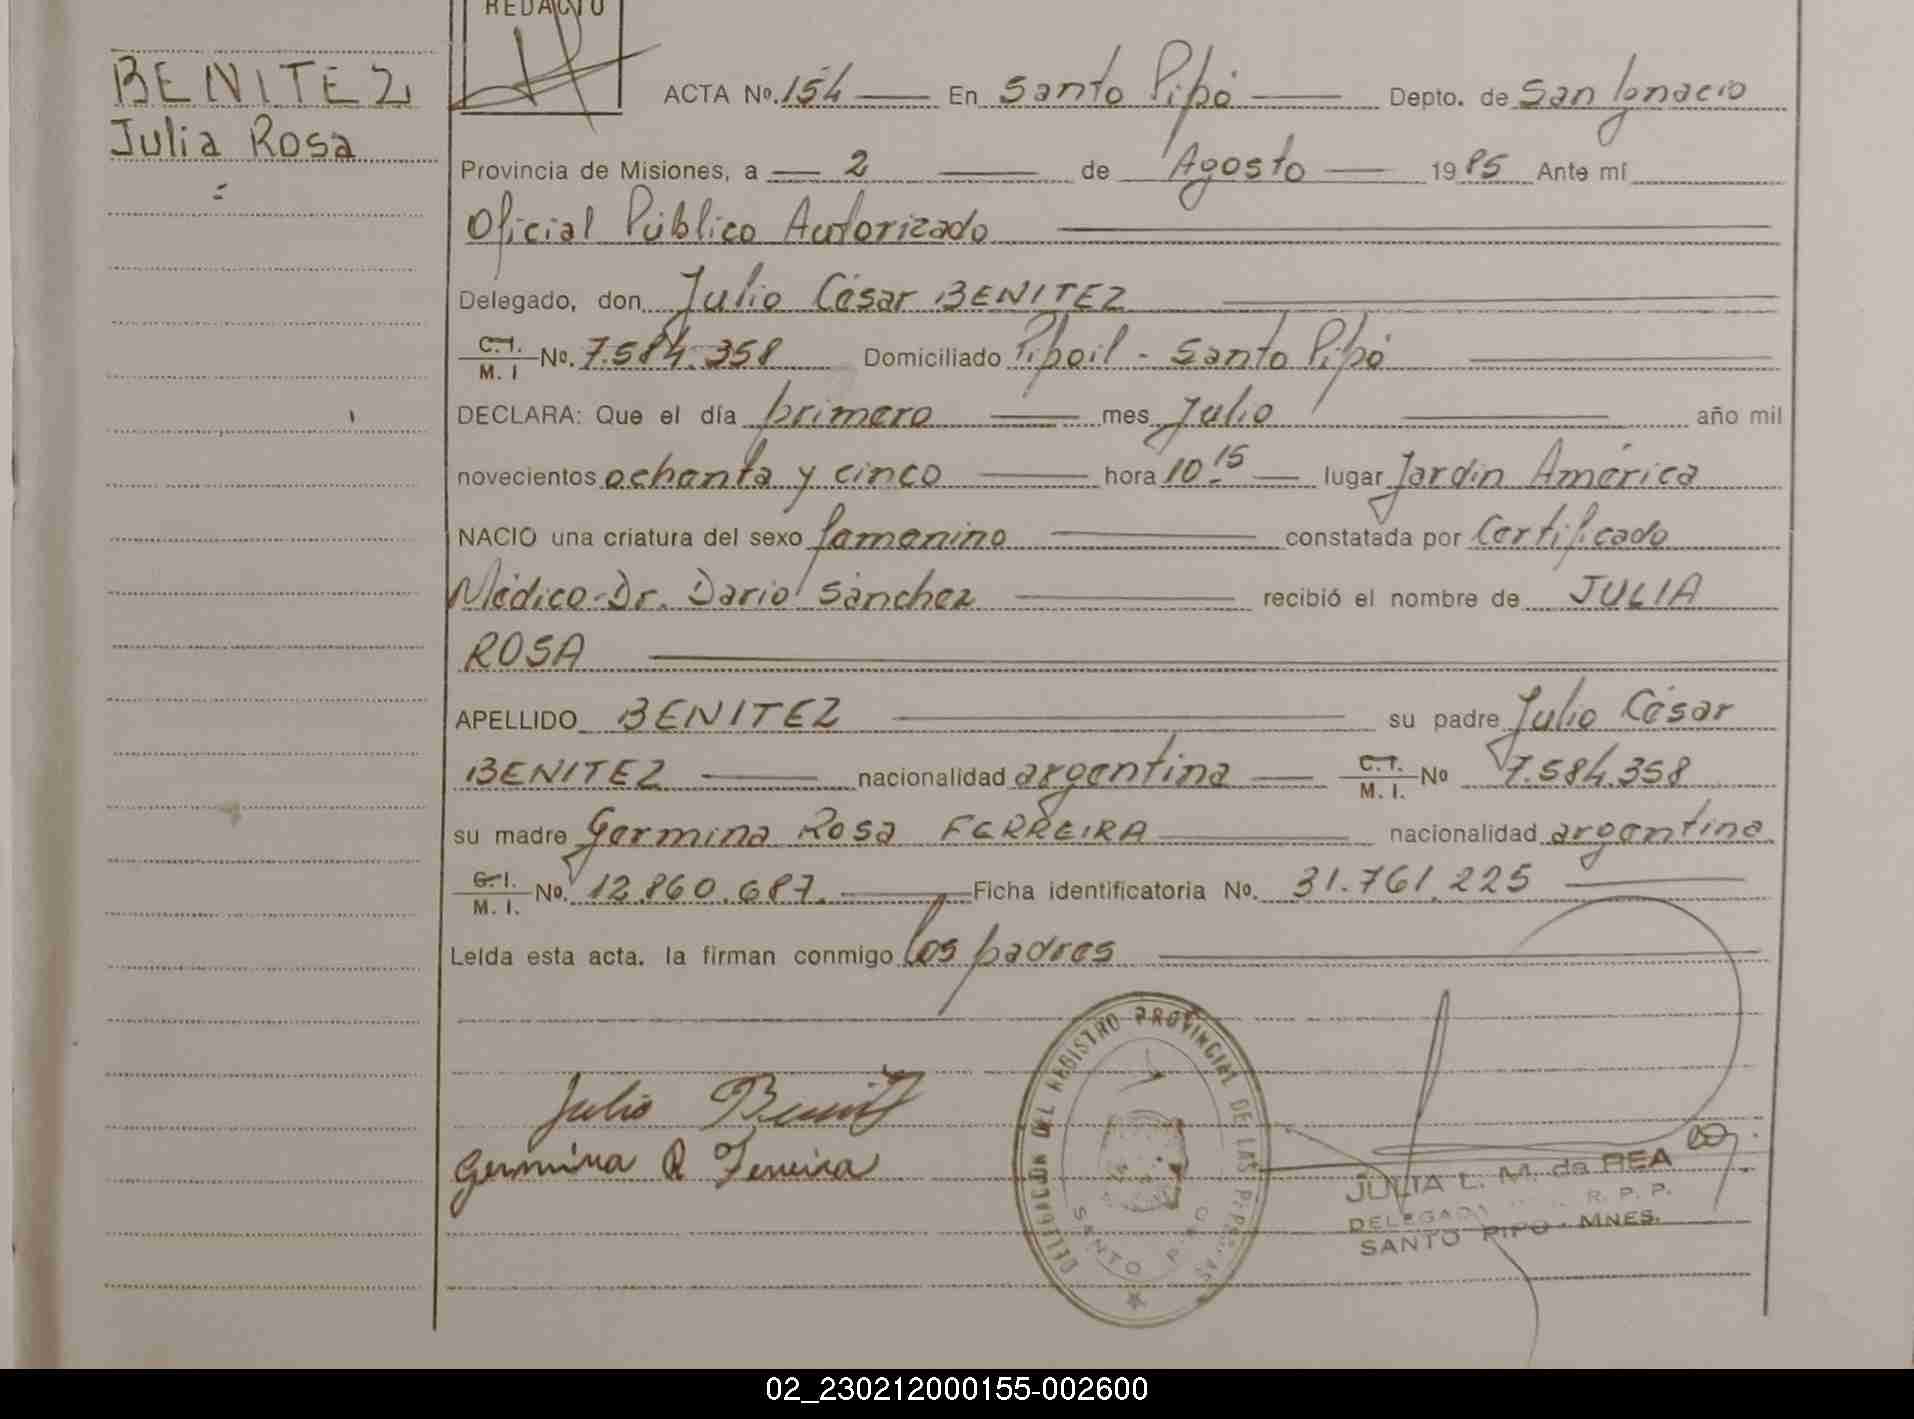 BENITEZ
Julia Rosa
REDACTO
ACTA Nº. 154 En Santo Pipó Depto. de San Ignacio
Provincia de Misiones, a 2 de Agosto 1985 Ante mí
Oficial Público Autorizado
Delegado, don Julio César BENITEZ
C.I. M. I Nº. 7.584.358 Domiciliado Pipoil - Santo Pipó
DECLARA: Que el día primero mes Julio año mil
novecientos ochenta y cinco hora 10.15 lugar Jardín América
NACIO una criatura del sexo femenino constatada por Certificado
Médico-Dr. Darío Sánchez recibió el nombre de JULIA
ROSA
APELLIDO BENITEZ su padre Julio César
BENITEZ nacionalidad argentina C.I. M. I. Nº 7.584.358
su madre Germina Rosa FERREIRA nacionalidad argentina
C.I. M. I. Nº. 12.860.687. Ficha identificatoria Nº. 31.761.225
Leída esta acta. la firman conmigo los padres
Julio Benit
Germina R Ferreira
DELEGACIÓN DEL REGISTRO PROVINCIAL DE LAS PERSONAS
SANTO PIPO
JULIA L. M. de REA
DELEGADA R. P. P.
SANTO PIPO - MNES.
02_230212000155-002600